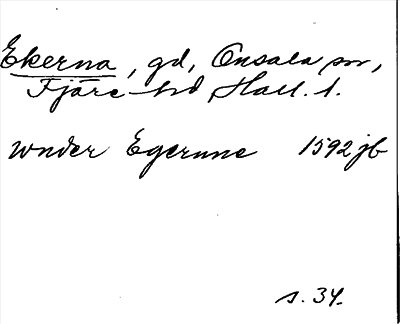 Ekerna, gd, Onsala sn,
Fjäre hd, Hall. l.
wnder Egernne 1592 jb
s. 34.